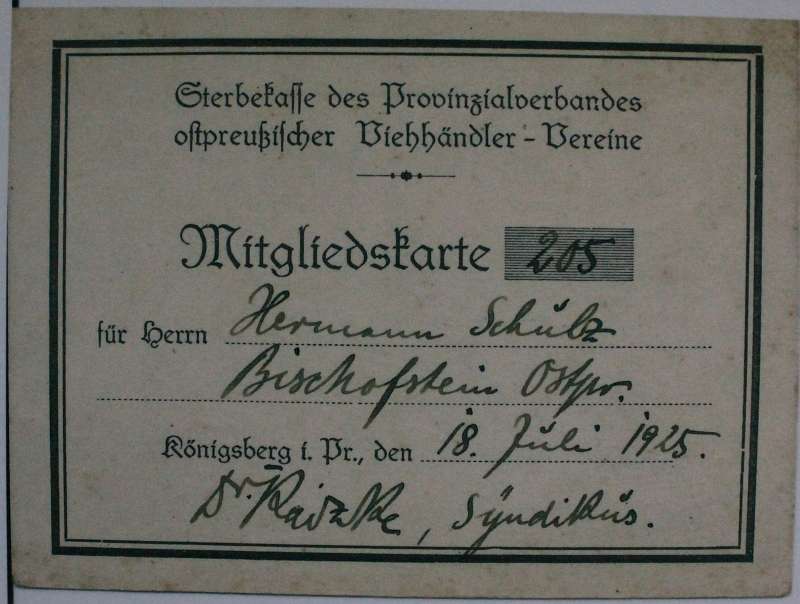 Sterbekasse des Provinzialverbandes
ostpreußischer Viehhändler-Vereine
Mitgliedskarte 205
für Herrn Hermann Schulz
Bischofstein Ostpr.
Königsberg i. Pr., den 18. Juli 1925.
Dr. , Syndikus.